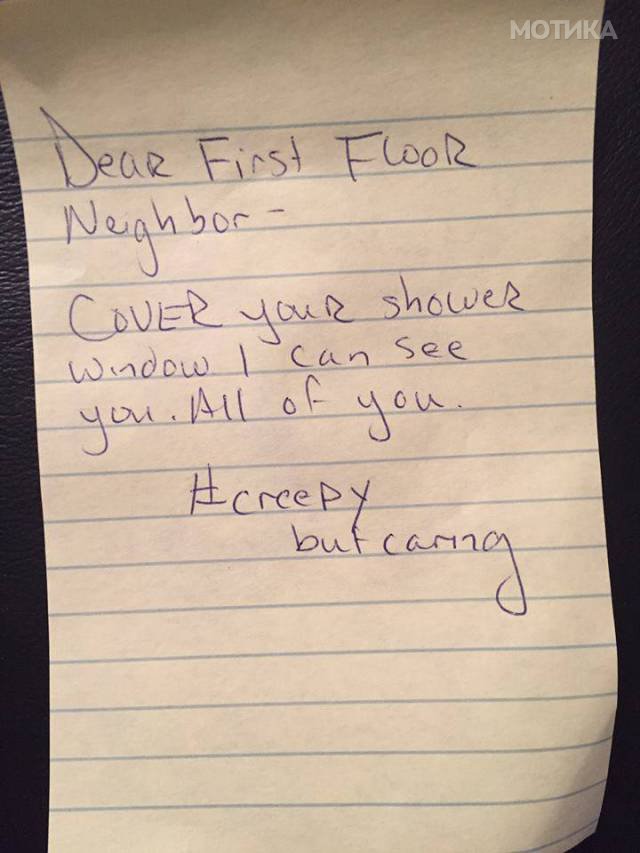 МОТИКА
Dear First Floor
Neighbor-
COVER your shower
window I can see
you. All of you.
#creepy
but caring